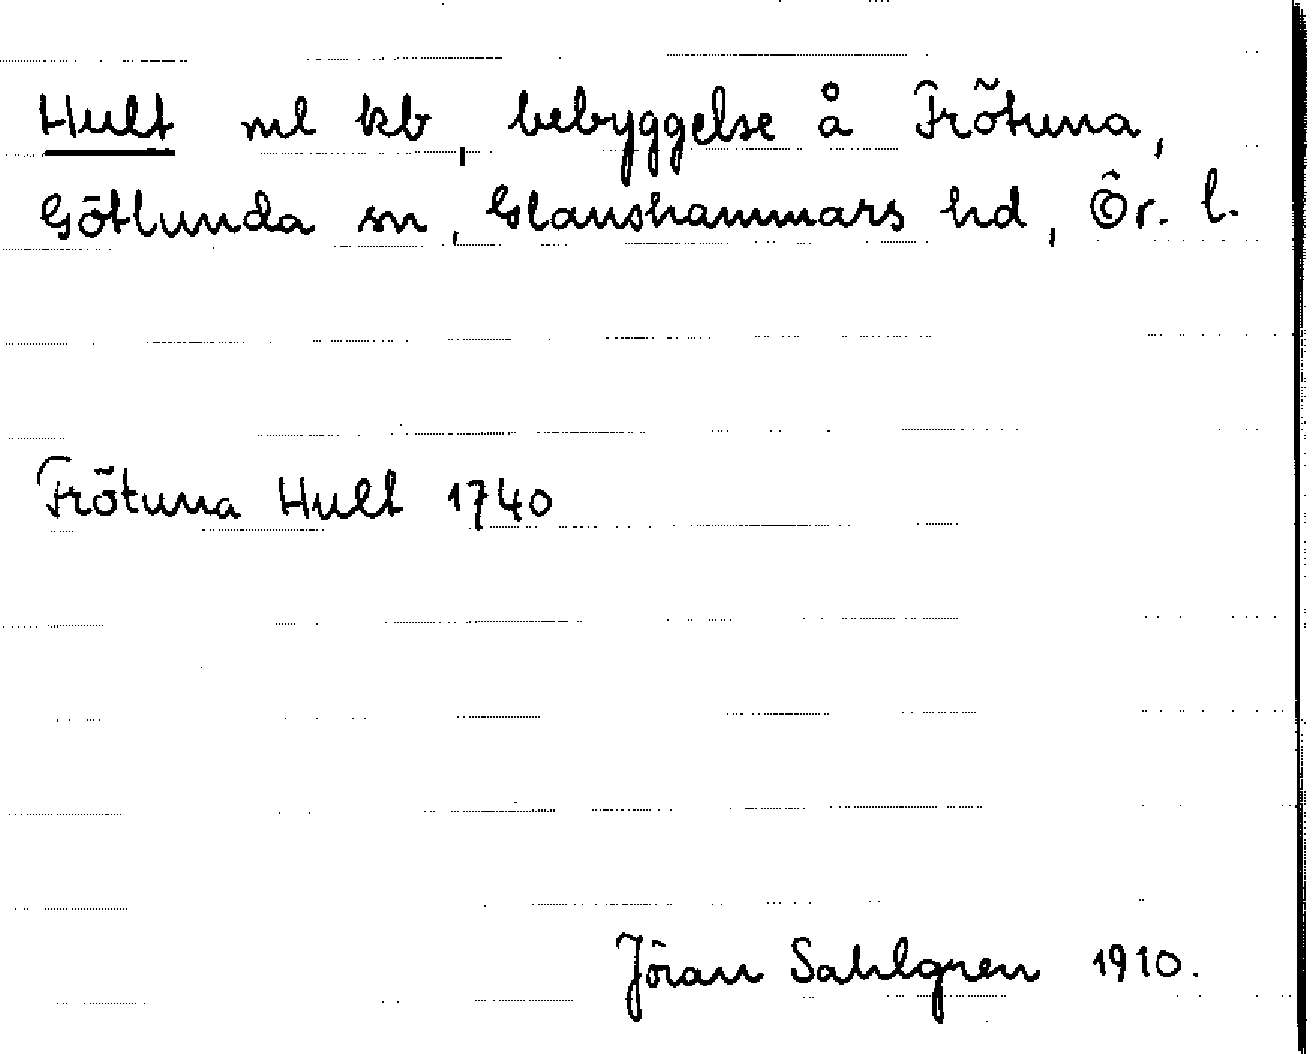 Hult ml kb, bebyggelse å Frötuna,
Götlunda sn, Glanshammars hd, Ör. l.
Frötuna Hult 1740
Jöran Sahlgren 1910.